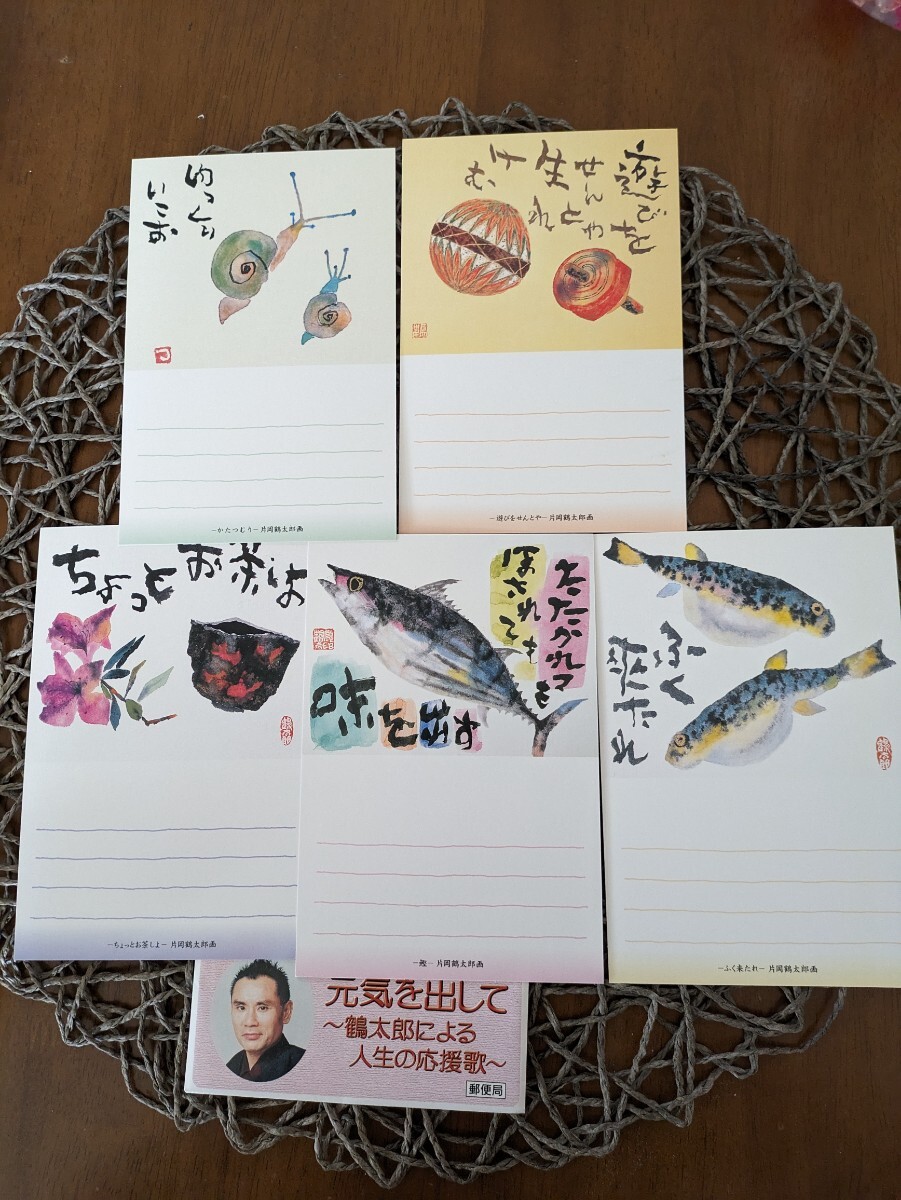 ゆっくり
いこお
つ
－かたつむり－片岡鶴太郎画
遊びを
せんとや
生れ
けむ
－遊びをせんとや－片岡鶴太郎画
ちょっと
お茶しよ
－ちょっとお茶しよ－ 片岡鶴太郎画
たたかれつも
ほされても
味を出す
－鰹－ 片岡鶴太郎画
ふく
来たれ
－ふく来たれ－ 片岡鶴太郎画
元気を出して
～鶴太郎による
人生の応援歌～
郵便局